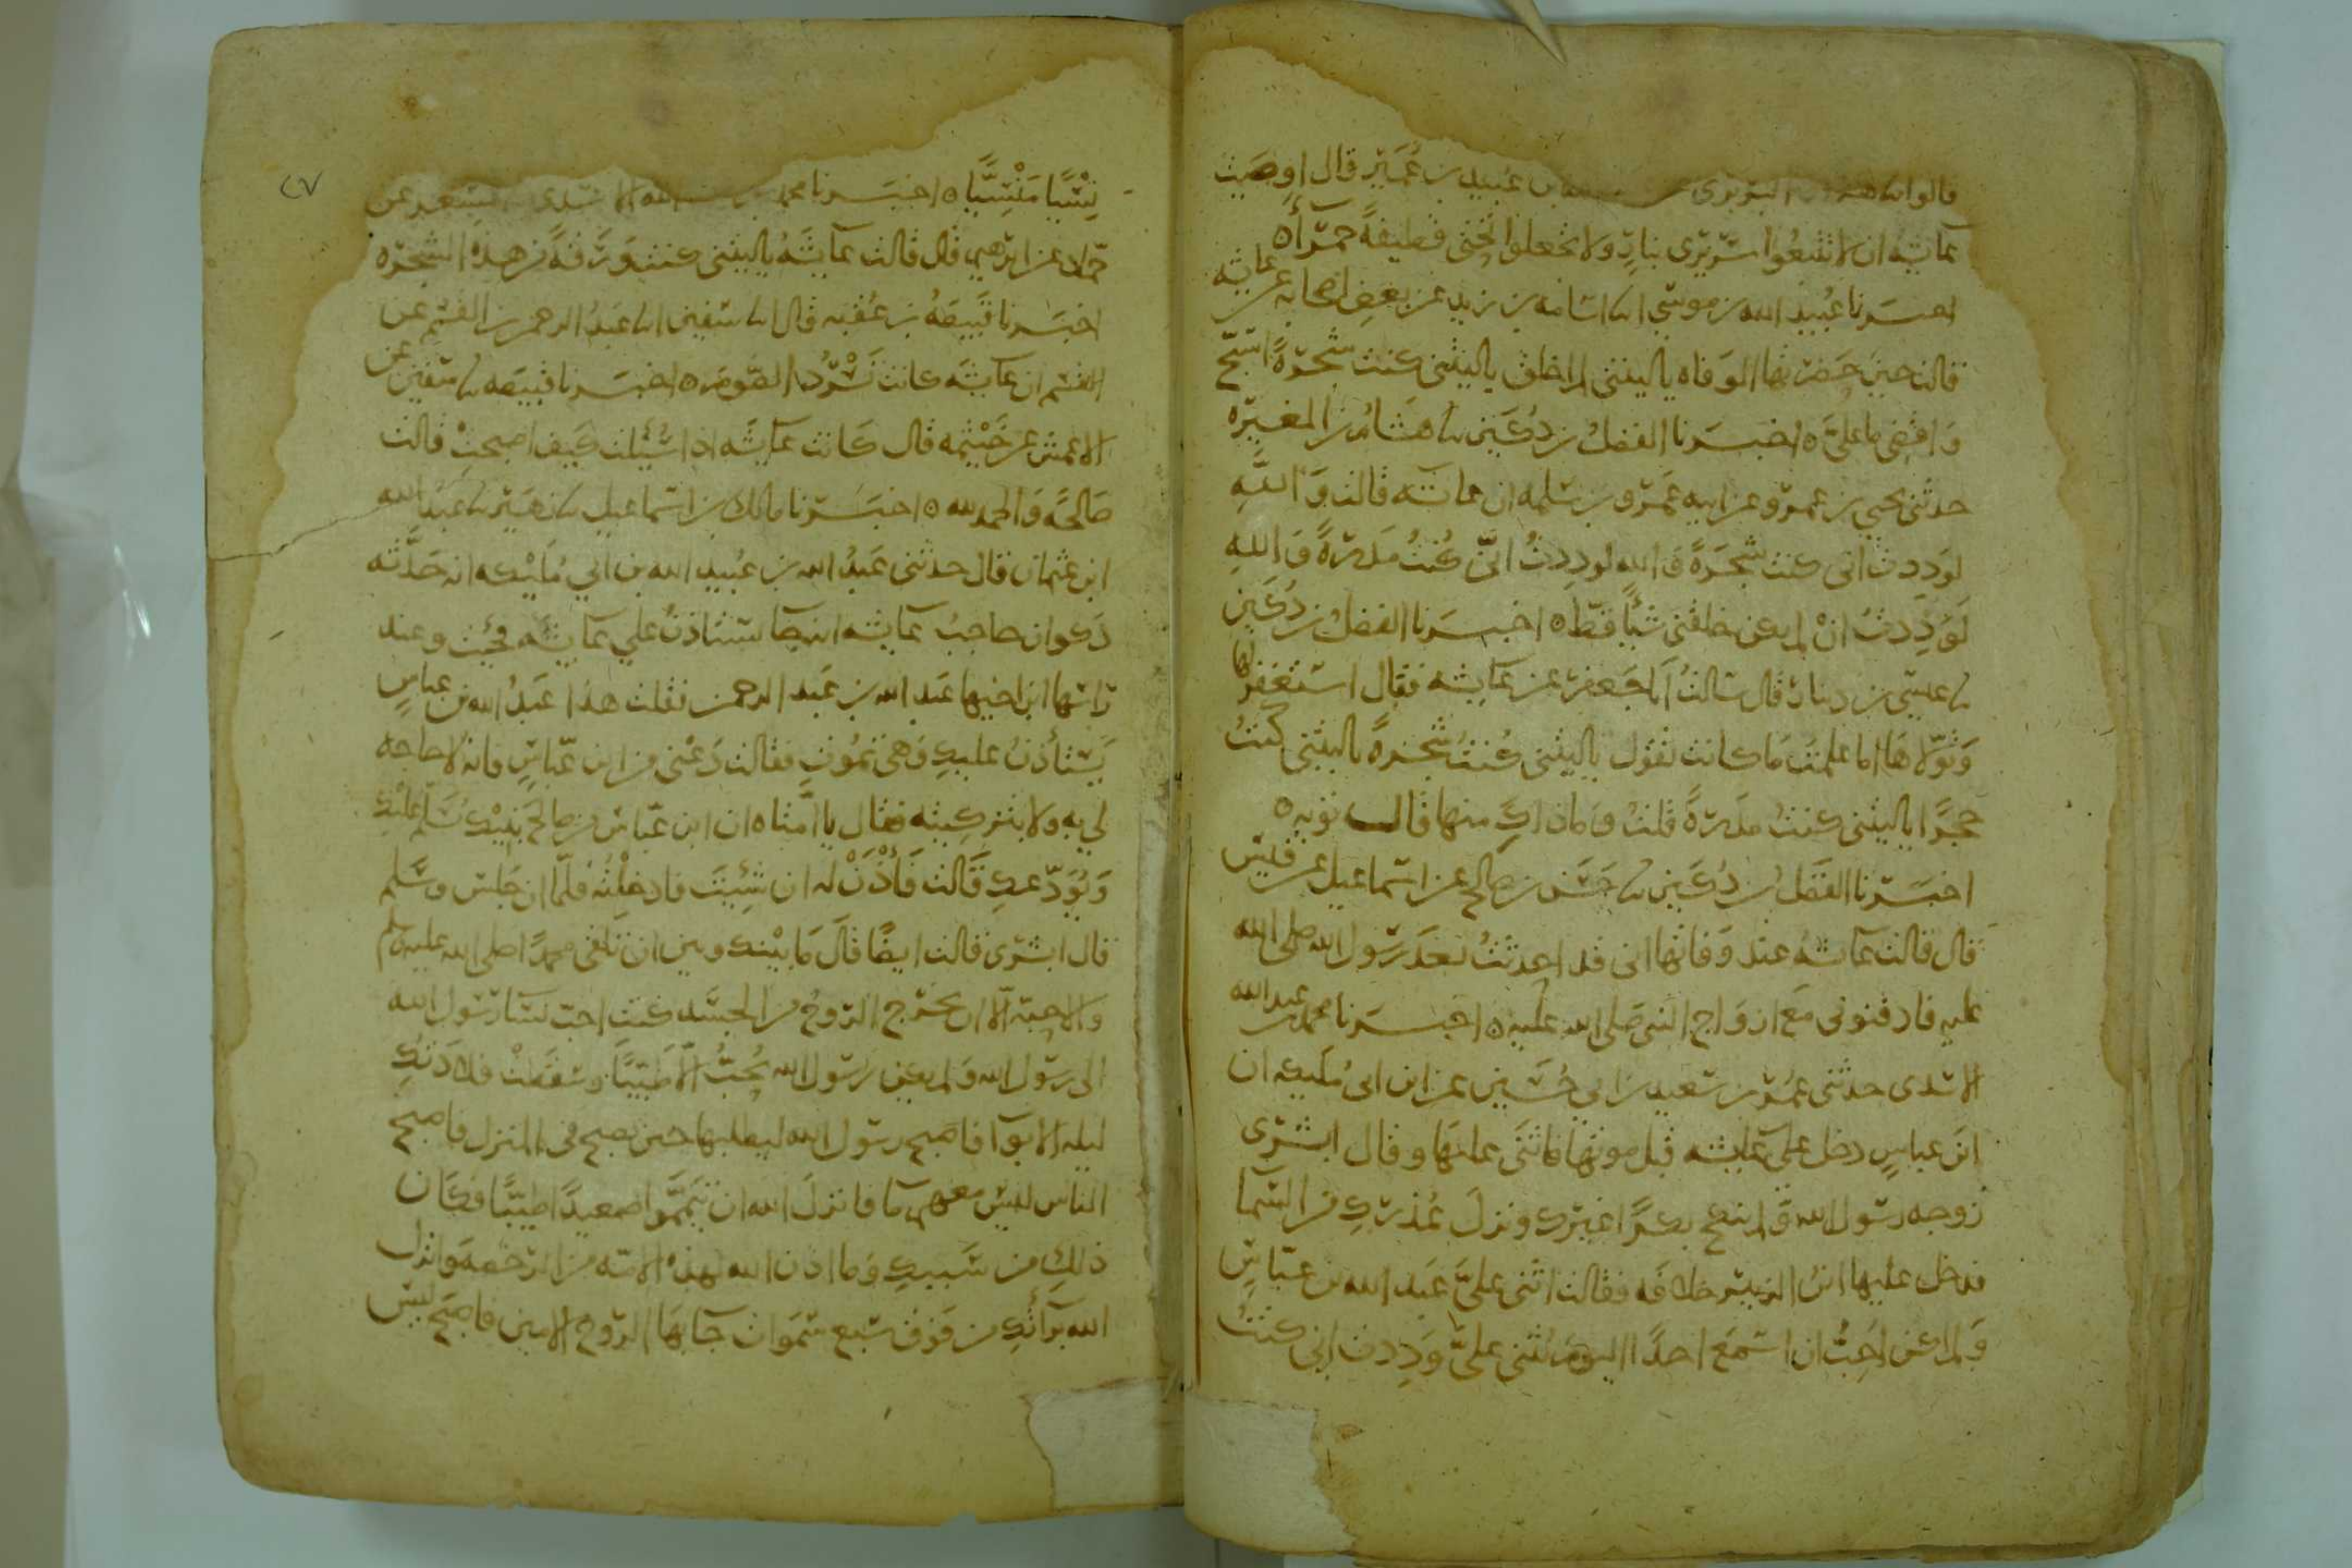 قالوا انا هشـ البربري عن بن عبيد بن عُمَيْر قال اوصَيت
عائشه ان لا تتبعُوا سَرِيرى بنارٍ ولا تجعلوا تحتى قطيفةً حمرآء ٥
اخبَرنا عُبيد الله بن موسى انا اسَامه بن زيد عن بعض اصحابه عن عائشه
قالت حينَ حضرتها الوَفاه ياليتنى لم اخلق ياليتنى كنت شجَرةً اسَبّح
وَاقضى ما علىَّ ٥ اخبَرنا الفضلُ بن دُكَين نا هشامُ بن المغيره
حدثنى يحيى بن عمرو عن ابيه عَمرو بن سَلمه ان عائشه قالت وَاللَّهِ
لوَدِدت انى كنت شَجَرةً وَالله لودِدتُ انّى كُنتُ مَدَرَةً وَاللهِ
لَوَدِدتُ انْ لم يكن خلقنى شيأً قطّ ٥ اخبَرنا الفضلُ بن دُكَين
نا عيسى بن دينار قال سَالتُ اَبا جَعفر عن عَايشه فقال استغفر لها
وَتَوّلاهَا اما علمتَ مَا كانت تقول ياليتنى كُنتُ شجَرةً ياليتنى كنتُ
حجَرًا ياليتنى كنتُ مدَرَةً قلتُ وَماذاكَ منها قال توبه ٥
اخبَرنا الفضلُ بن دُكَين نا حَسَن بن صالح عن اسماعيل عن قيس
قال قالت عَائشه عند وَفاتها انى قد احدثتُ بعدَ رسَول الله صلى الله
عليه فادفنونى مَع ازوَاج النبى صَلى الله عليه ٥ اخبَرنا محمد بن عبد الله
الاسَدى حدثنى عُمَر بن سَعيد بن ابى حُسَين عن ابن ابى مُليكه ان
ابنَ عباسٍ دخل على عَايشه قبل موتها فاثنَى عليهَا وقال ابشرى
زوجه رسَول الله وَلم ينكح بكرًا غيرَك ونزلَ عُذرَكِ من السَّما
فدخل عليها ابنُ الزبير خلافَه فقالت اثنى علىَّ عَبد الله بن عبّاسٍ
وَلم اكن احِبُّ ان اسمَع احدًا اليومَ يُثنى علىَّ وَدِدت انى كنتُ
٢٧
نِسْيًا مَنْسِيًّا ٥ اخبَرنا محمد بن عبد الله الاسَدى نا مِسْعر عن
حمّاد عن ابرَهيم قال قالت عَايشَهُ ياليتنى كنت وَرَقةً من هذه الشجَره
اخبَرنا قَبيصَهُ بن عُقبه قال انا سفين انا عَبدُ الرحمن بن القسم عن
القسم ان عايشَه كانت تَسْرُدُ الصَّومَ ٥ اخبَرنا قبيصَه نا سفين عن
الاعمش عن خَيْثمه قال كَانت عَايشَه اذا سُئلت كيف اصبحتْ قالت
صَالحَه وَالحمد لله ٥ اخبَرنا مالك بن اسماعيل نا زهَير نا عَبدُ الله
ابن عثمان قال حدثنى عَبدُ الله بن عُبيد الله بن ابى مُليْكه انه حَدَّثه
ذكوان حاجبُ عَايشه انه جا يستاذنُ على عَايشه فجئت وعند
رَاسها ابن اخيها عَبد الله بن عَبد الرحمن فقلت هذا عَبدُ الله بن عباسٍ
يَستأذنُ عليكِ وَهى تموت فقالت دَعْنى من ابن عَباسٍ فانه لا حاجه
لى بِه ولا بتزكيته فقال يا اُمّتاه ان ابن عَبّاس من صَالحى بَنيْكِ يُسَلّم عليكِ
وَيُوَدّعكِ قَالت فَأْذَنْ لهُ ان شئيتَ فادخلتُه فلمّا ان جَلسَ وسَلم
قال ابشرى قالت ايضًا قال مَا بَيْنك وبين ان تلقَى محمدًا صلى الله عليه وسلم
وَالاحِبّه اِلّا ان يخرُج الرّوحُ من الجسَد كنت احبّ نسَا رسُول الله
الى رسُول الله وَلم يكن رَسُول الله يُحبُّ اِلّا طَيّبًا وَسَقطَتْ قلادَتكِ
ليله الابوآ فاصبح رسَول الله ليطلبها حين يصبح فى المنزل فاصبح
الناس لَيسَ معهم مآ فانزلَ الله ان تيَمّمَوا صَعيدًا طيّبًا فكَان
ذلكِ من سَببكِ وَما اذن الله لهذه الامّه من الرّخصَه وَانزل
الله برَآئكِ من فوَق سَبع سَموَات جآ بهَا الرّوح الامين فاصبَحَ ليس